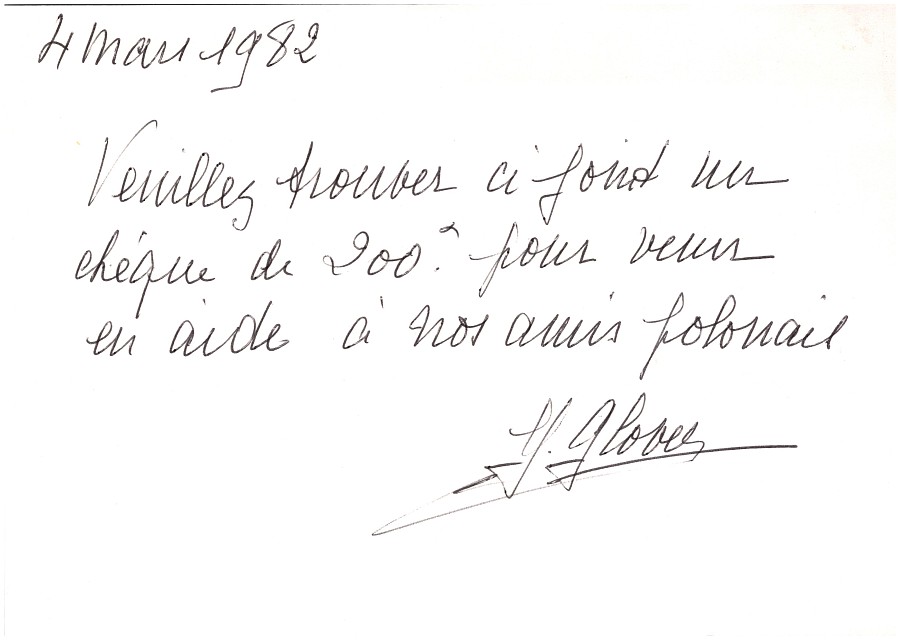 4 Mars 1982
Veuillez trouver ci joint un
chèque de 200F. pour venir
en aide à nos amis polonais
Glover